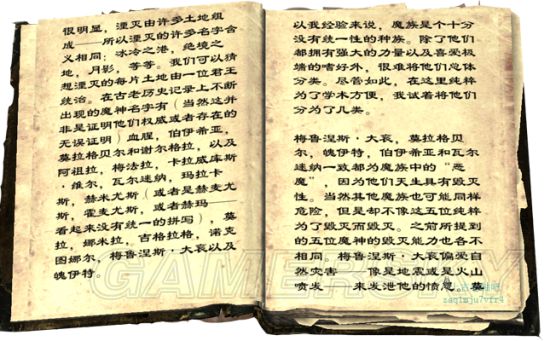 很明显，湮灭由许多土地组
成——所以湮灭的许多名字含
义相同：冰冷之港，绝境之
地，月影，等等。我们可以猜
想湮灭的每片土地由一位君王
统治。在古老历史记录上不断
出现的魔神名字有（当然这并
非是证明他们权威或者存在的
无误证明）血腥，伯伊希亚，
莫拉格贝尔和谢尔格拉，以及
阿祖拉，梅法拉，卡拉威库斯
·维尔，瓦尔迷纳，玛拉卡
斯，赫米尤斯（或者是赫麦尤
斯，霍麦尤斯，或者赫玛——
看起来没有统一的拼写），莫
拉，娜米拉，吉格拉格，诺克
图娜尔，梅鲁涅斯·大衮以及
魄伊特。
以我经验来说，魔族是个十分
没有统一性的种族。除了他们
都拥有强大的力量以及喜爱极
端的嗜好外，很难将他们总体
分类。尽管如此，在这里纯粹
为了学术方便，我试着将他们
分为了几类。
梅鲁涅斯·大衮，莫拉格贝
尔，魄伊特，伯伊希亚和瓦尔
迷纳一致都为魔族中的“恶
魔”，因为他们天生具有毁灭
性。当然其他魔族也可能同样
危险，但是却不像这五位纯粹
为了毁灭而毁灭。之前所提到
的五位魔神的毁灭能力也各不
相同 梅鲁涅斯·大衮偏爱自
然灾害 像是地震或是火山
喷发 来发泄他的愤怒。莫
GAMERSKY
zaqtmju7vfr4